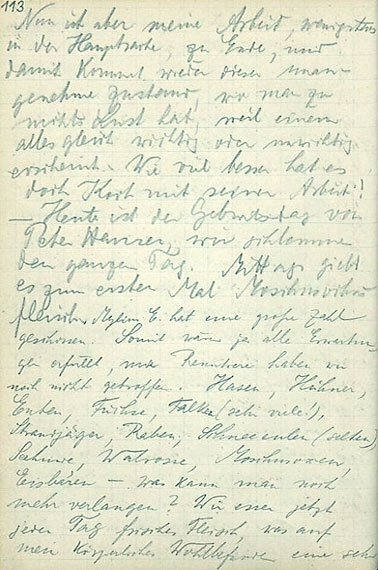 113
Nun ist aber meine Arbeit, wenigstens
in der Hauptsache, zu Ende, und
damit kommt wieder dieser unan-
genehme Zustand, wo man zu
nichts Lust hat, weil einem
alles gleich wichtig oder unwichtig
erscheint. Wie viel besser hat es
doch Koch mit seiner Arbeit!
— Heute ist der Geburtstag von
Peter Hansen, wir schlemmen
den ganzen Tag. Mittags giebt
es zum ersten Mal Moschusochsen
fleisch. Mylius E. hat eine große Zahl
geschossen. Somit wären ja alle Erwartun-
gen erfüllt, nur Renntiere haben wir
noch nicht getroffen. Hasen, Hühner,
Enten, Füchse, Falken (sehr viele!),
Strandjäger, Raben, Schneeeulen (selten)
Seehunde, Walrosse, Moschusoxen,
Eisbären — was kann man noch
mehr verlangen? Wir essen jetzt
jeden Tag frisches Fleisch, was auf
mein körperliches Wohlbefinden eine sehr